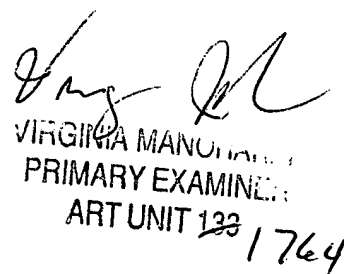 VIRGINIA
PRIMARY EXAMINER
ART UNIT 133
1764